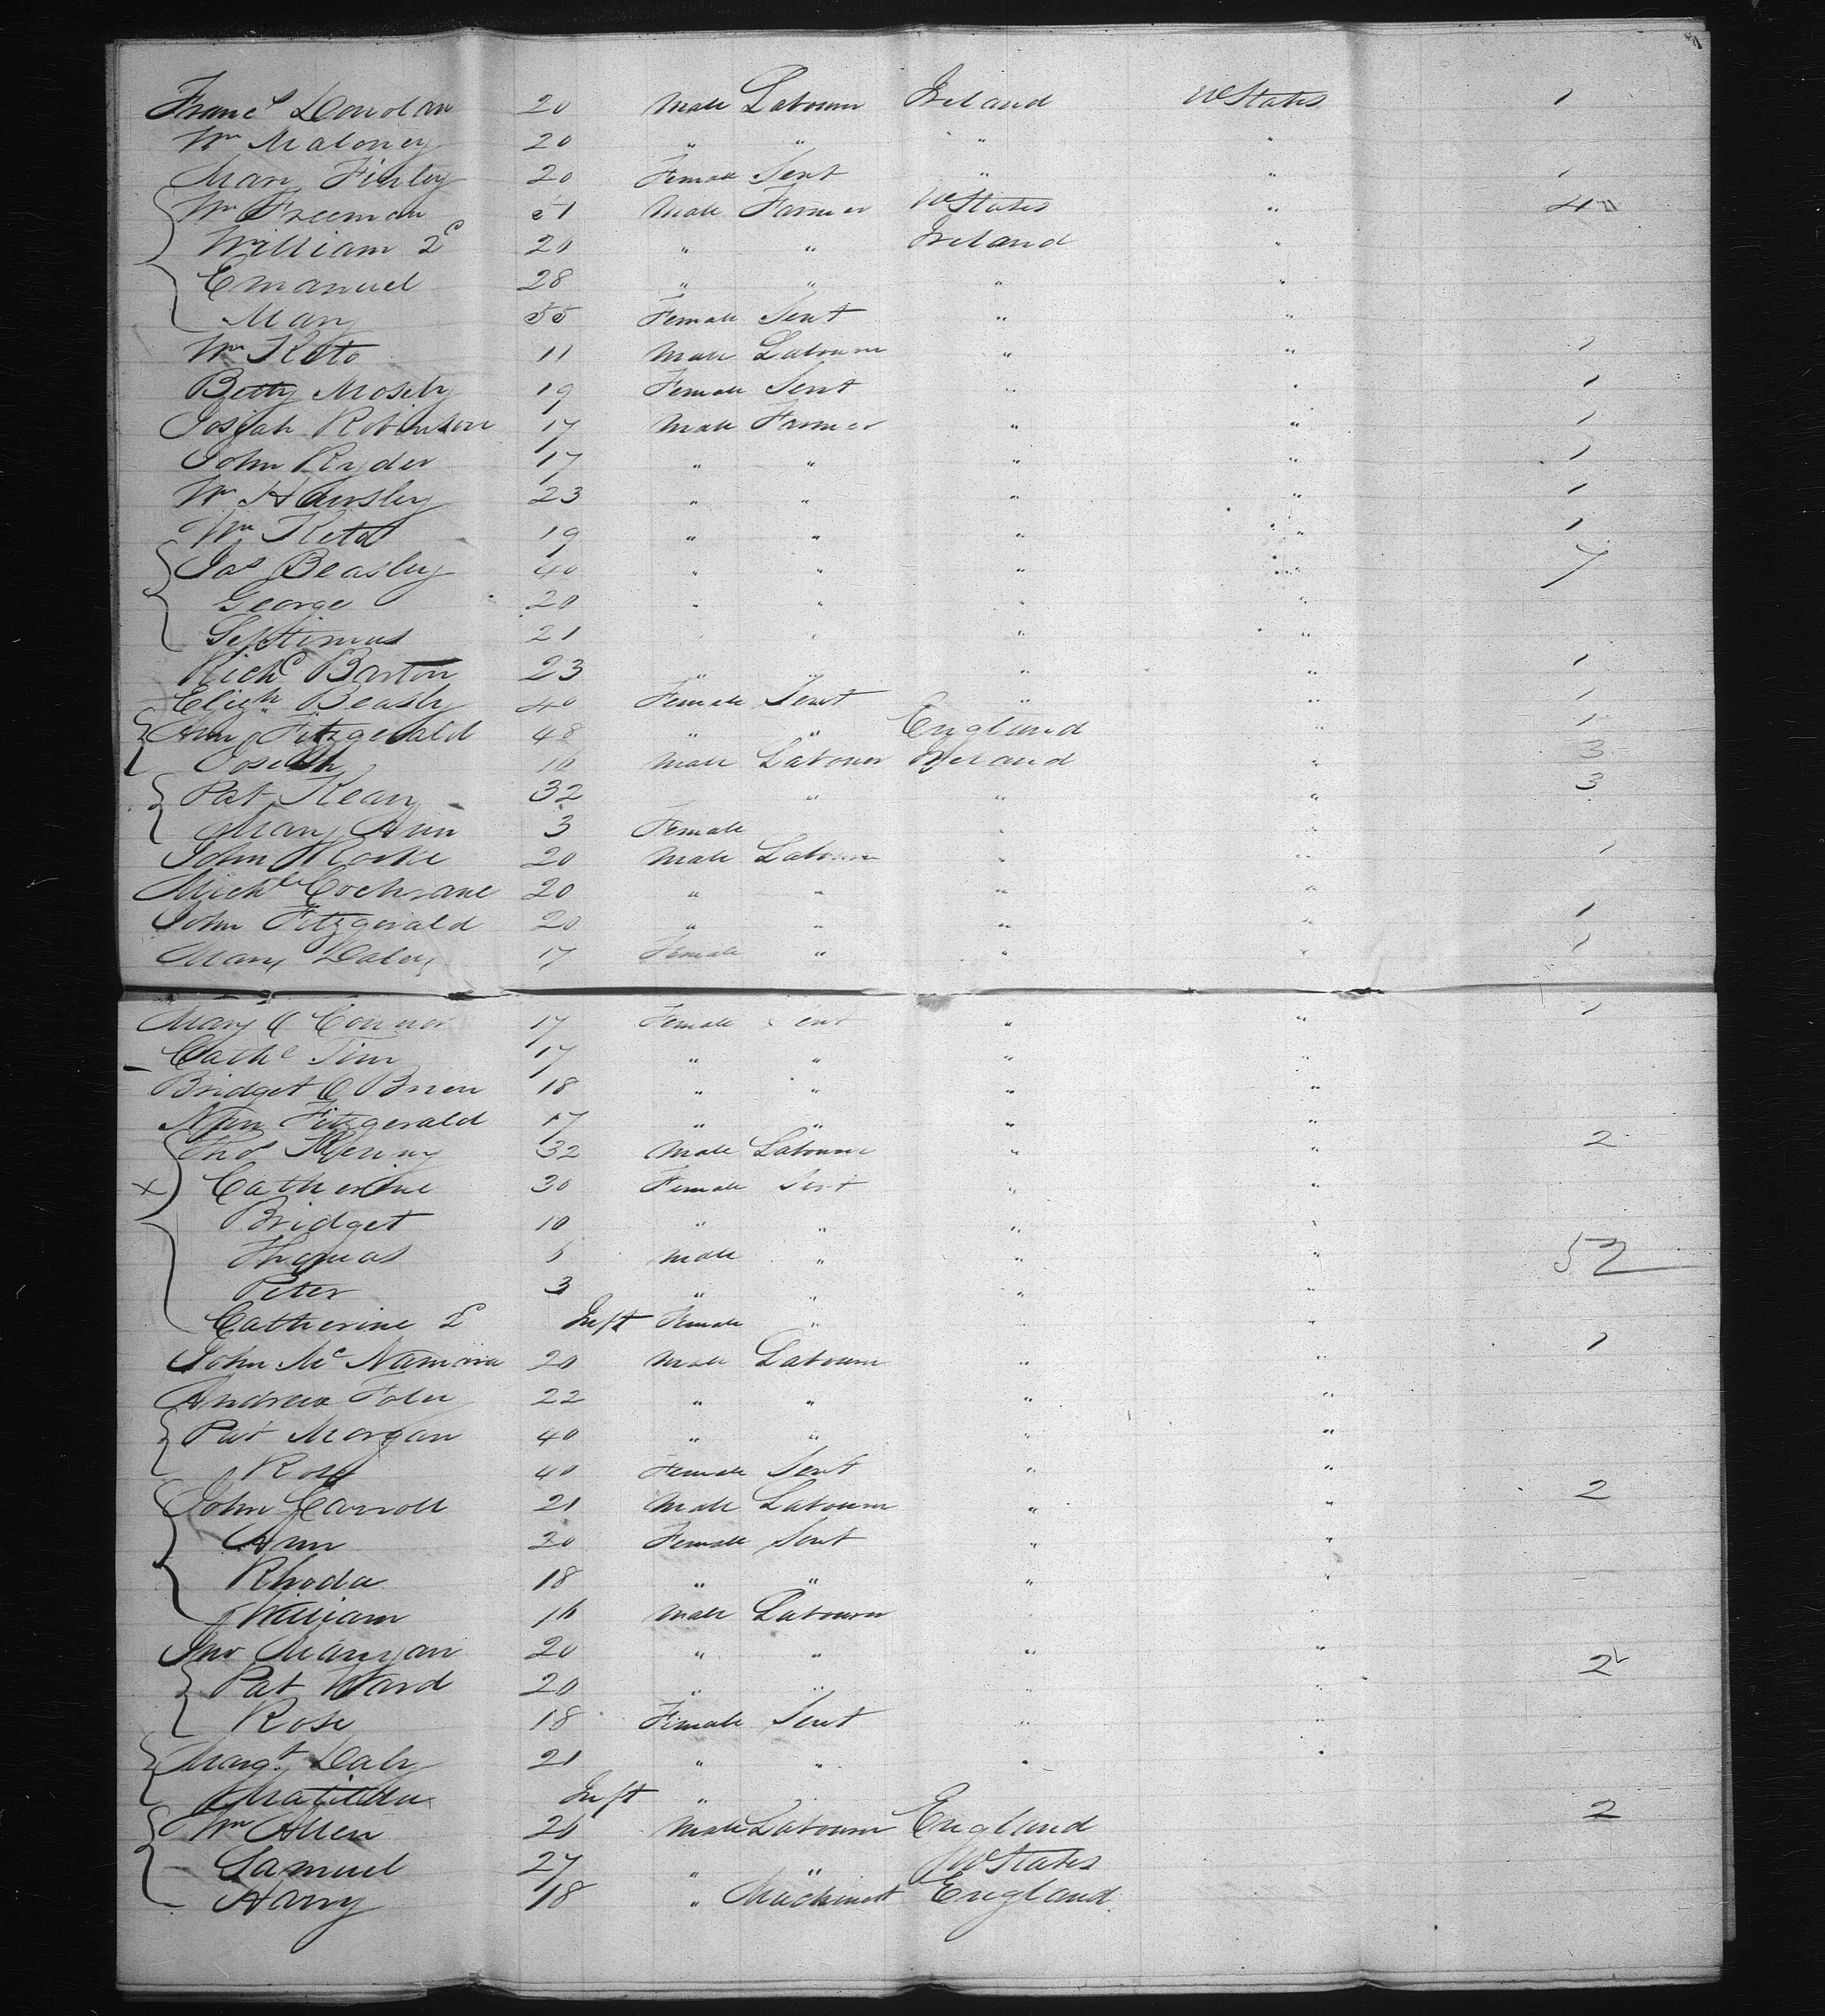 Franc^s Dowdan 20 Male Labourer Ireland U States 1
W^m Maloney 20 " " " "
Mary Finley 20 Female Servt " " 1
W^m Freeman 51 Male Farmer U States " 4
William 2^d 20 " " Ireland "
Emanuel 28 " " " "
Mary 55 Female Servt " "
W^m Keto 11 Male Labourer " " 1
Betty Mosely 19 Female Servt " " 1
Josiah Robinson 17 Male Farmer " " 1
John Ryder 17 " " " " 1
W^m Hawsley 23 " " " " 1
W^m Keto 19 " " " " 1
Jas Beasley 40 " " " " 7
George 20 " " " "
Septimus 21 " " " "
Rich^d Barton 23 " " " " 1
Eliz^h Beasly 40 Female Servt " " 1
Ann Fitzgerald 48 " " England " 1
Joseph 10 Male Labourer Ireland " 3
Pat Kean 32 " " " 3
Mary Ann 3 Female " "
John Rorke 20 Male Labourer " " 1
Mich^l Cochrane 20 " " " "
John Fitzgerald 20 " " " " 1
Mary Daley 17 Female " " " 1
Mary O Connor 17 Female Servt " " 1
Cath^e Tim 17 " " " "
Bridget O Brien 18 " " " "
Ann Fitzgerald 17 " " " "
Tho^s Kenny 32 Male Labourer " " 2
x Catherine 30 Female Servt " "
Bridget 10 " " " "
Thomas Male " " " 52
Peter 3 " " " "
Catherine 2^d Inft Female " " "
John M^c Namara 20 Male Labourer " " 1
Andrew Foley 22 " " " "
Pat Morgan 40 " " " "
Rose 40 Female Servt " "
John Carroll 21 Male Labourer " " 2
Ann 20 Female Servt " "
Rhoda 18 " " " "
William 16 Male Labourer " "
Jno Mangan 20 " " " "
Pat Ward 20 " " " " 2
Rose 18 Female Servt " "
Marg^t Daly 21 " " " "
Matilda Inft " "
W^m Allen 20 Male Labourer England 2
Samuel 27 " " U States
Harry 18 " Machinist England